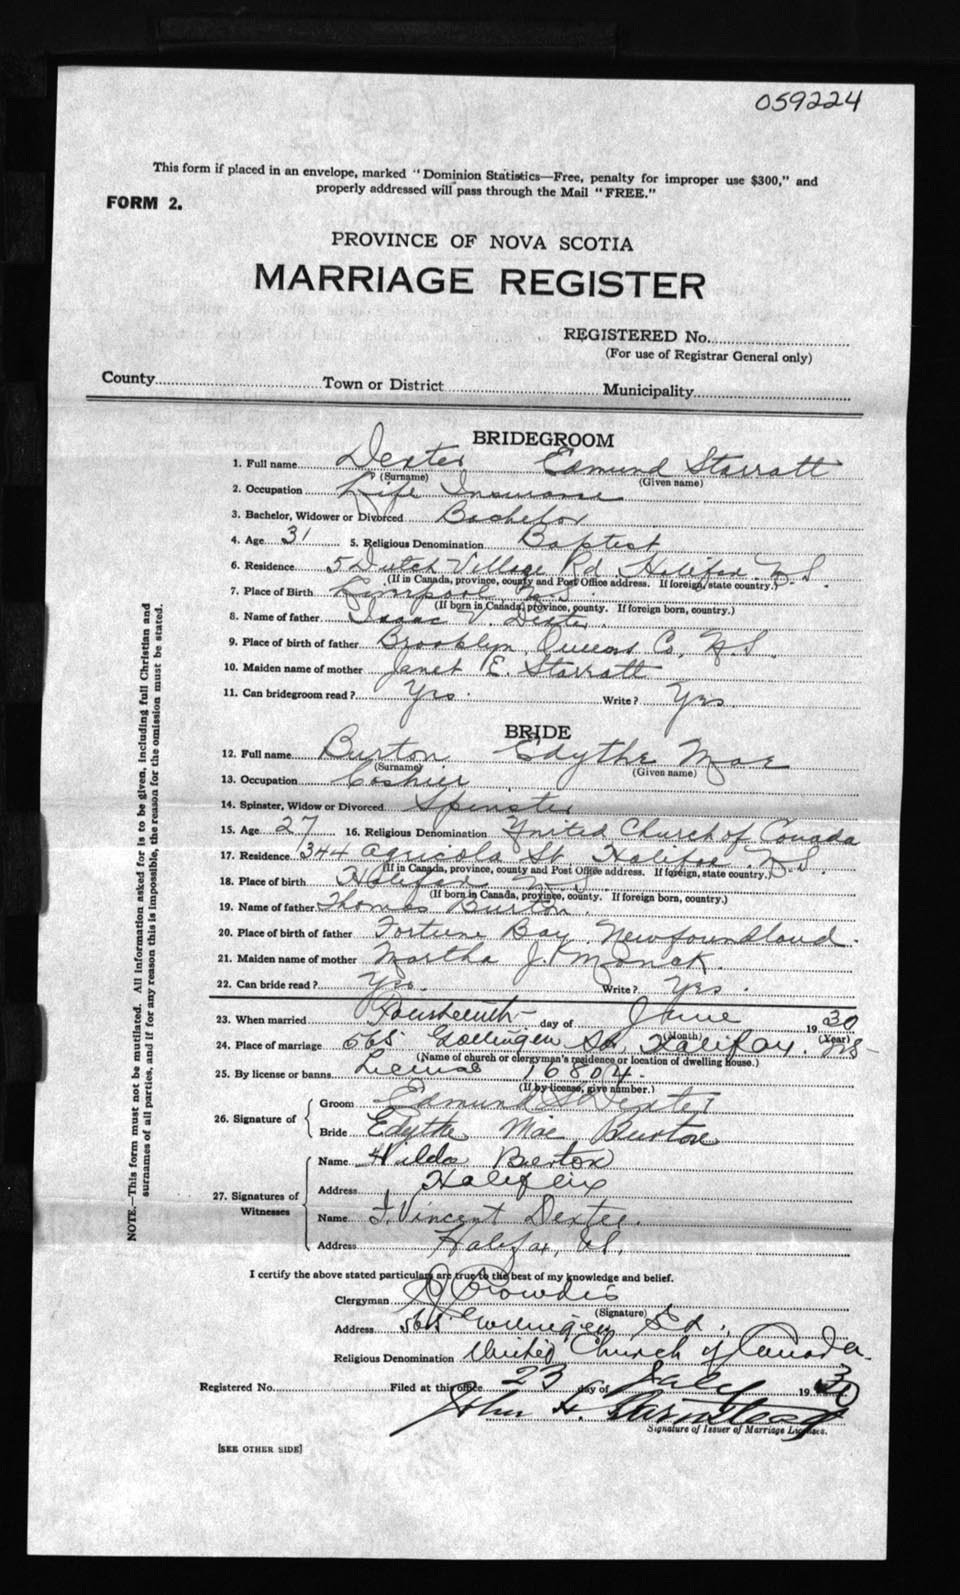 059224
This form if placed in an envelope, marked "Dominion Statistics—Free, penalty for improper use $300," and
properly addressed will pass through the Mail "FREE."
FORM 2.
PROVINCE OF NOVA SCOTIA
MARRIAGE REGISTER
REGISTERED No.
(For use of Registrar General only)
County Town or District Municipality
BRIDEGROOM
1. Full name Dexter Edmund Starratt
(Surname) (Given name)
2. Occupation Life Insurance
3. Bachelor, Widower or Divorced Bachelor
4. Age 31 5. Religious Denomination Baptist
6. Residence 5 Dutch Village Rd Halifax N.S.
(If in Canada, province, county and Post Office address. If foreign, state country.)
7. Place of Birth Liverpool N.S.
(If born in Canada, province, county. If foreign born, country.)
8. Name of father Isaac V. Dexter.
9. Place of birth of father Brooklyn, Queens Co, N.S.
10. Maiden name of mother Janet E. Starratt
11. Can bridegroom read? Yes. Write? Yes.
BRIDE
12. Full name Burton Edythe Mae
(Surname) (Given name)
13. Occupation Cashier
14. Spinster, Widow or Divorced Spinster
15. Age 27 16. Religious Denomination United Church of Canada
17. Residence 344 Agricola St. Halifax N.S.
(If in Canada, province, county and Post Office address. If foreign, state country.)
18. Place of birth Halifax N.S.
(If born in Canada, province, county. If foreign born, country.)
19. Name of father Thomas Burton.
20. Place of birth of father Fortune Bay, Newfoundland.
21. Maiden name of mother Martha J.
22. Can bride read? Yes. Write? Yes.
23. When married Fourteenth day of June 1930
(Month) (Year)
24. Place of marriage 565 Gottingen St, Halifax. NS
(Name of church or clergyman's residence or location of dwelling house.)
25. By license or banns. License 16804.
(If by license, give number.)
26. Signature of Groom Edmund S Dexter
Bride Edythe Mae Burton
27. Signatures of Witnesses Name Hilda Burton
Address Halifax
Name Vincent Dexter.
Address Halifax, N.S.
I certify the above stated particulars are true to the best of my knowledge and belief.
Clergyman Crowdis
(Signature)
Address 565 Gottingen St.
Religious Denomination United Church of Canada.
Registered No. Filed at this office 23 day of July 1930
John H. Barnstead
Signature of Issuer of Marriage Licenses.
[SEE OTHER SIDE]
NOTE.—This form must not be mutilated. All information asked for is to be given, including full Christian and
surnames of all parties, and if for any reason this is impossible, the reason for the omission must be stated.